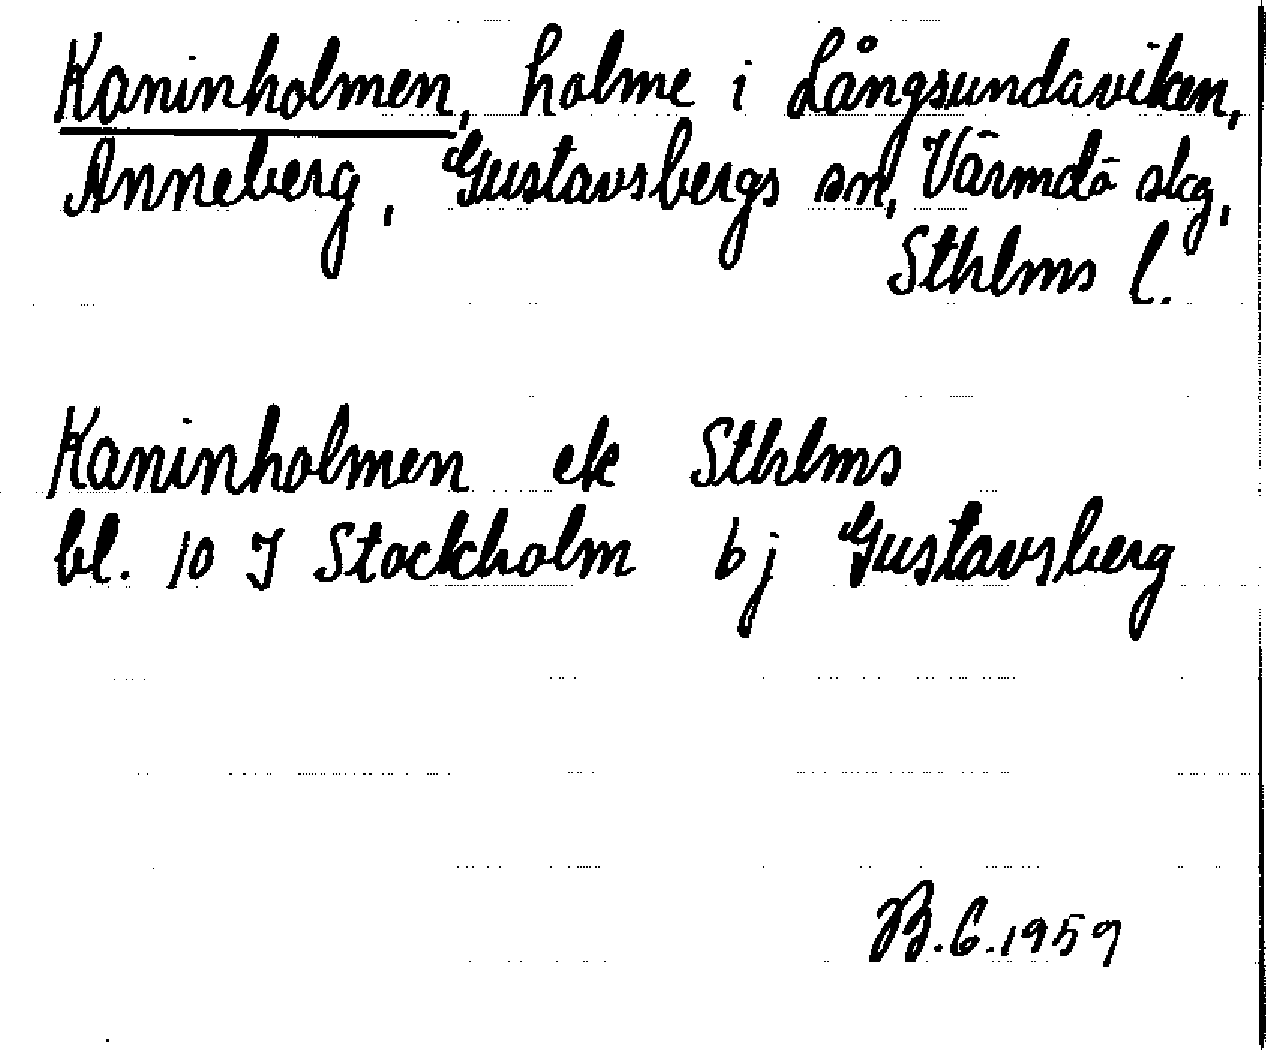 Kaninholmen, holme i Långsundaviken,
Anneberg, Gustavsbergs sn, Värmdö skg,
Sthlms l.
Kaninholmen ek Sthlms
bl. 10 I Stockholm bj Gustavsberg
B.G.1959